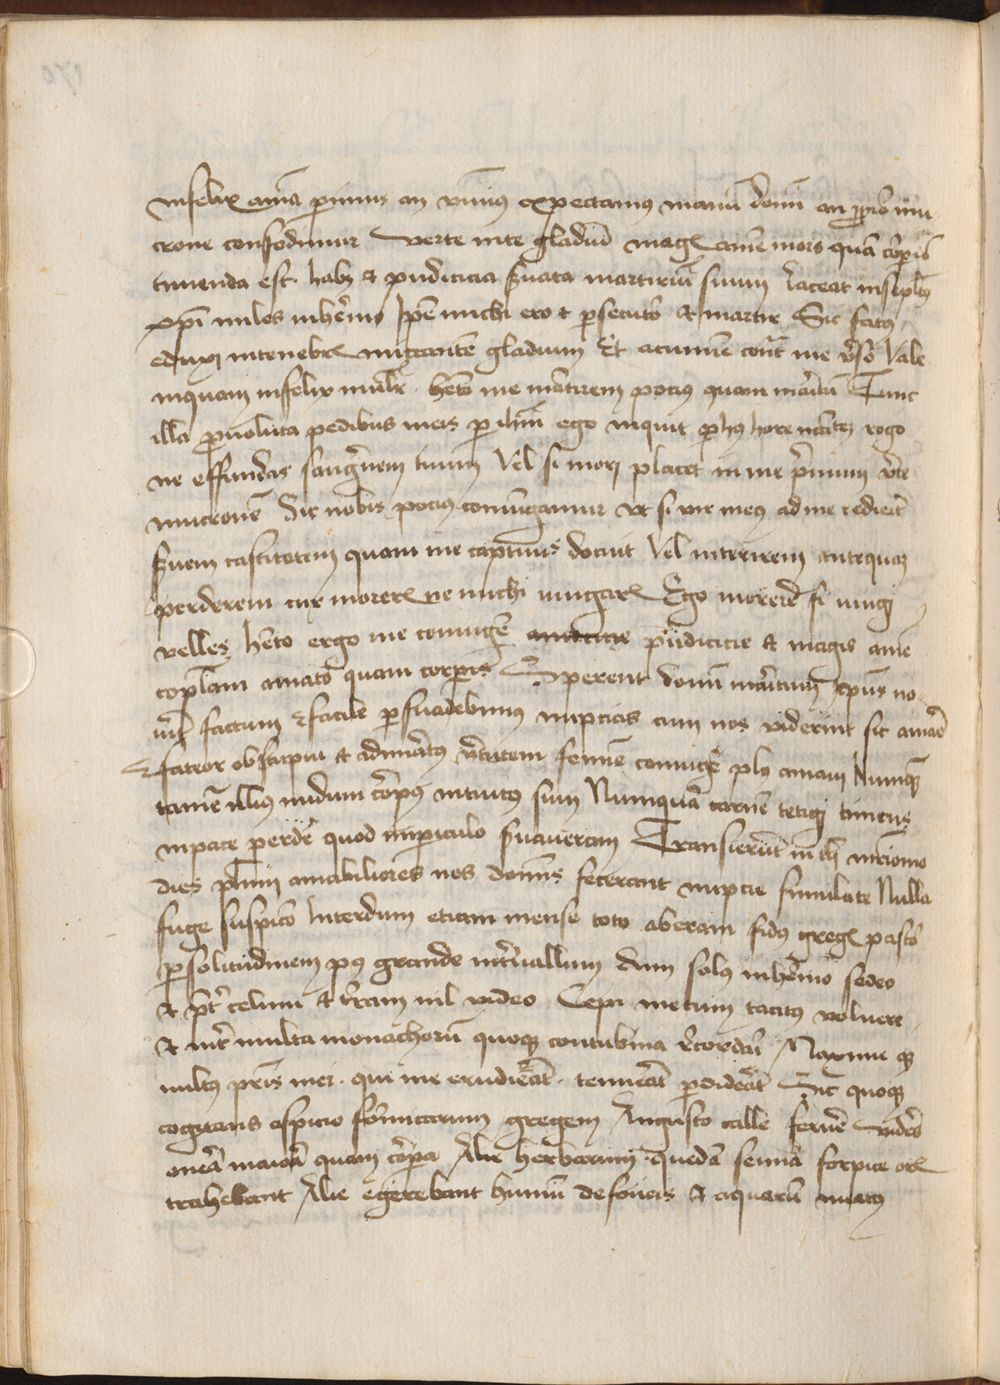 infelix aĩa perimus an vincimꝰ expectamus manũ domĩ an ꝓprio mu
crone confodimur Verte inte gladiũ magꝭ anime mors quã corꝑis
timenda est. habꝫ et pudicicia ẜuata martiriũ suum Iaceat insepultꝰ
xp̃i miles inhĕmo Ip̃e michi ero et ꝑsecutor et martir Sic fatus
eduxi intenebrꝭ micantẽ gladium Et acumine cont᷑ me v̾so Vale
inquam infelix muliẽr. hẽto me martirem pociꝰ quam maritũ Tunc
illa ꝓuoluta pedibus meis ꝑ ihm̃ ego inquit ꝑ hꝰ hore rogo
ne effundas sang̃nem tuum Vel si mori placet in me p̃mum v̾te
mucronẽ Sic nobis pociꝰ coniungamur vt si vir meꝰ ad me redierit
ẜuem castitatem quam me captiuitas docuit Vel interirem antequã
perderem cur morerꝭ ne michi iungarꝭ Ego morerer si iungi
velles hẽto ergo me coniugẽ pudicicie et magis aĩe
copulam amato quam corꝑis Sperent domĩ maritum xp̃us no
uit fratrem Et facile ꝑsuadebimus nupcias cum nos viderint sic amare
Fateor obstupui et admiratꝰ v̾tutem femine coniugẽ plꝰ amaui Nunquã
tamẽ illius nudum corpꝰ intuitus sum Nunquã carnẽ tetigi timens
in pace perderẽ quod in periculo ẜuaueram Transierũt in tali mr̃imonio
dies plurimi amabiliores nos dominis fecerant nupcie simulate Nulla
fuge suspicio Interdum etiam mense toto aberam fidꝰ gregꝭ pastor
ꝑ solitudinem pꝰ grande int᷑uallum dum solus inhĕmo sedeo
et p̃t̾ celum et t᷑ram nil video Cepi mecum tacitꝰ voluere
et int᷑ multa monachorũ quoqꝫ contubernia recordari Maxime qꝫ
vultus pr̃is mei. qui me erudierat. tenuerat perdiderat Sic quoqꝫ
cogitans aspicio formicarum gregem Angusto calle feruere videres
onera maiora quam corpora Alie herbarum quedã semina forpice oris
trahebant Alie egerebant humũ defoueis et aquarũ meatꝰ